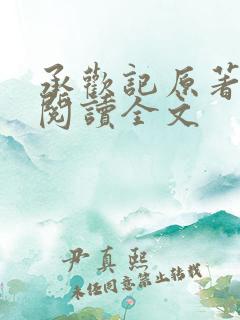 承歡記原著
閱讀全文
尹真熙
未经同意禁止转载